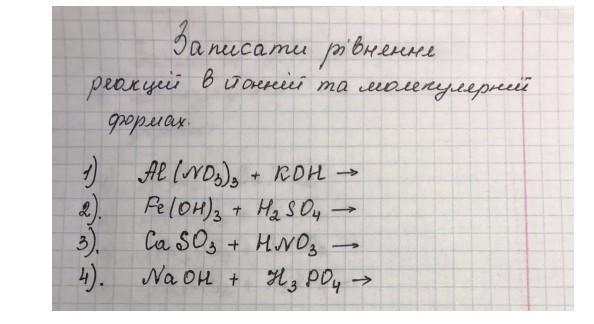 Записати рівняння
реакцій в йонній та молекулярній
формах.
1) Al(NO₃)₃ + KOH →
2). Fe(OH)₃ + H₂SO₄ →
3). CaSO₃ + HNO₃ →
4). NaOH + H₃PO₄ →